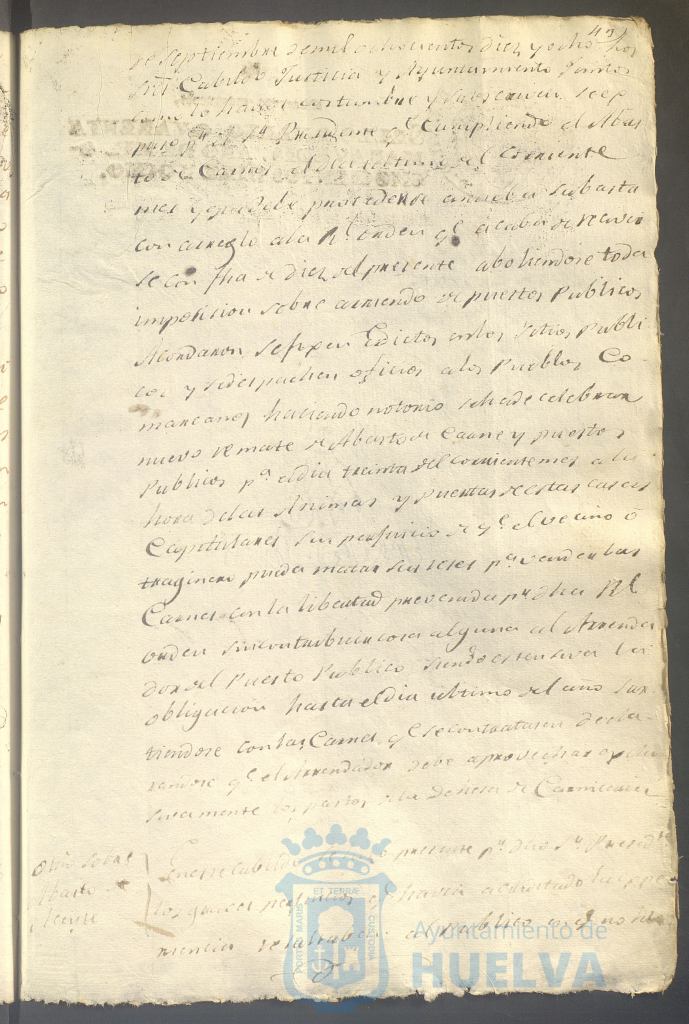 43
de Septiembre de mil ochocientos diez y ocho los
Sres. Cabildo Justicia y Ayuntamiento Juntos
como lo han de costumbre y
pr. el Sr. Presidente qe. Cumpliendo el Abas
to de Carnes el dia ultimo del Corriente
mes y que debe procederse a nueba subasta
con arreglo a la Rl. orden qe. acaba de recivir
se con fha de diez del presente aboliendose toda
imposision sobre arriendo de puestos Publicos
Acordaron se fixen Edictos en los sitios Publi
cos y se despachen oficios a los Pueblos Co-
marcanos haciendo notorio se ha de celebrar
nuevo remate de Abasto de Carne y puestos
Publicos pa. el dia treinta del corriente mes a la
hora de las Animas y puertas de estas casas
Capitulares sin perjuicio de qe. el vecino ó
traginero pueda matar sus reses pa. vender las
Carnes con la libertad prevenida pr. dha Rl.
orden sin contribuir cosa alguna al Arrenda
dor del Puesto Publico siendo estensiva la
obligación hasta el dia ultimo del año sur
tiendose con las Carnes qe. se contratasen decla-
randose qe. el Arrendador debe aprovechar exclu
sivamente los pastos de la Dehesa de Carniceria
Otro sobre
Abasto de
Aceyte
En este Cabildo se hizo presente pr. dho Sr. Presidte.
los graves perjuicios qe. havia acreditado la expe
riencia al publico
PORTVS MARIS
ET TERRÆ
CVSTODIA
Ayuntamiento de
HUELVA